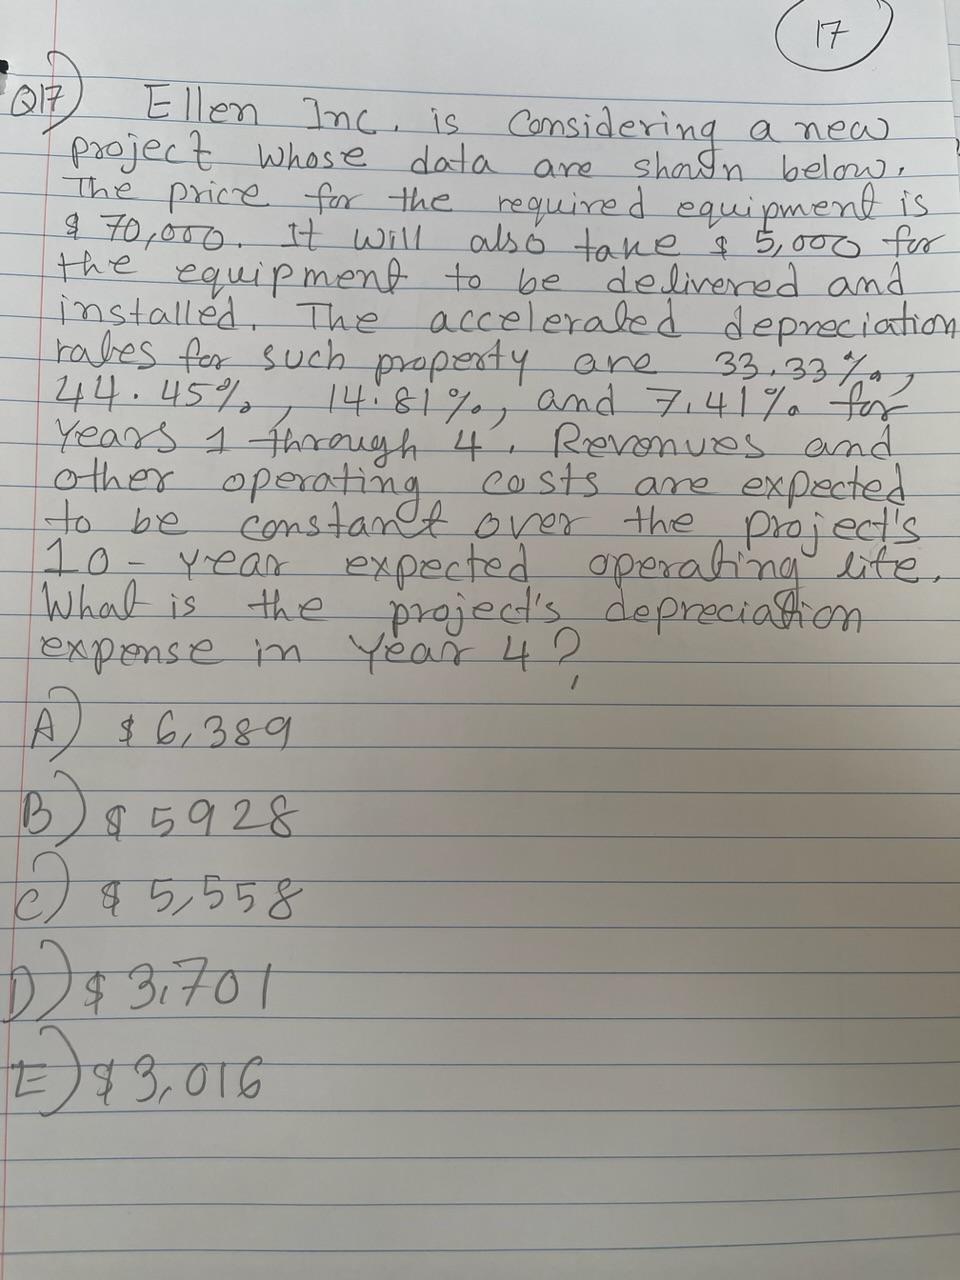 17
Q17) Ellen Inc. is considering a new
project whose data are shown below.
The price for the required equipment is
$ 70,000. It will also take $ 5,000 for
the equipment to be delivered and
installed. The accelerated depreciation
rates for such property are 33.33%,
44.45%, 14.81%, and 7.41% for
Years 1 through 4. Revenues and
other operating costs are expected
to be constant over the project's
10-year expected operating life.
What is the project's depreciation
expense in Year 4?
A) $ 6,389
B) $ 5928
C) $ 5,558
D) $ 3,701
E) $ 3,016